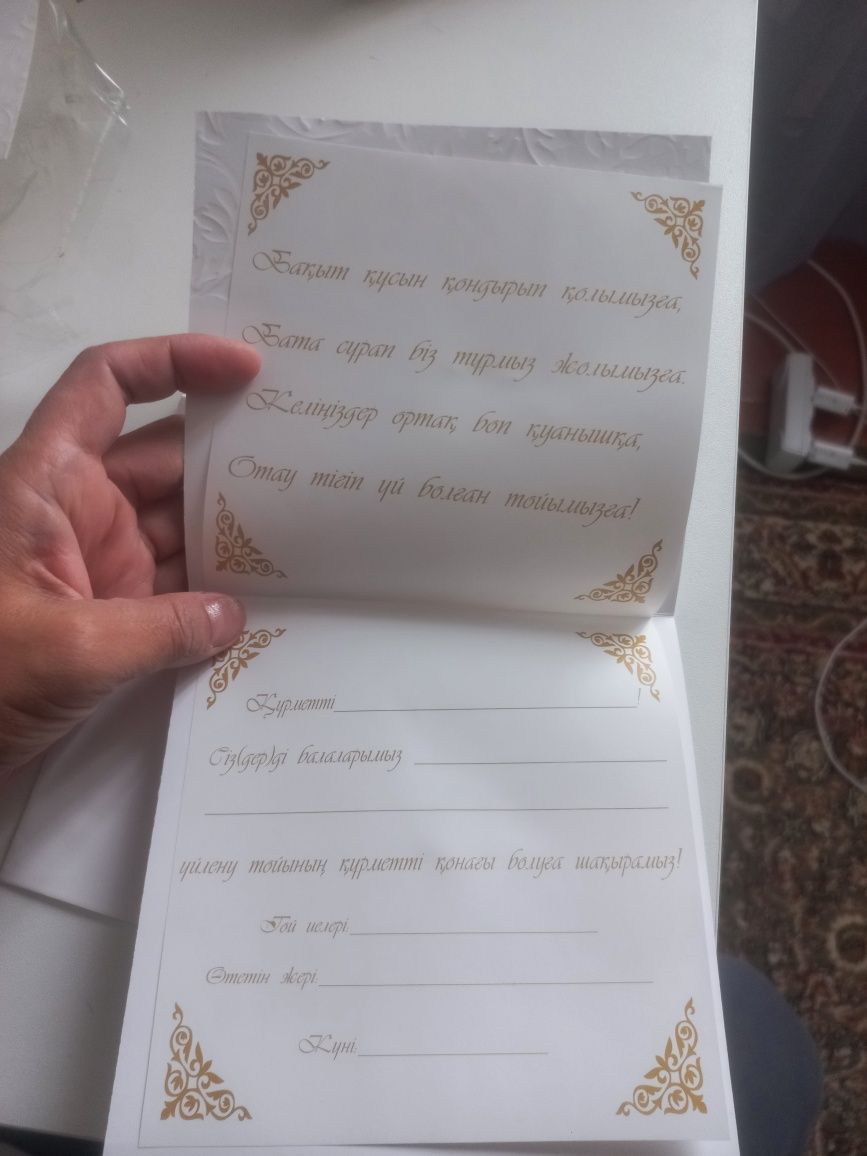 Бақыт құсын қондырып қолымызға,
Бата сұрап біз тұрмыз жолымызға.
Келіңіздер ортақ боп қуанышқа,
Отау тігіп үй болған тойымызға!
Құрметті____________________!
Сіз(дер)ді балаларымыз ____________________
____________________
үйлену тойының құрметті қонағы болуға шақырамыз!
Той иелері:____________________
Өтетін жері:____________________
Күні:____________________